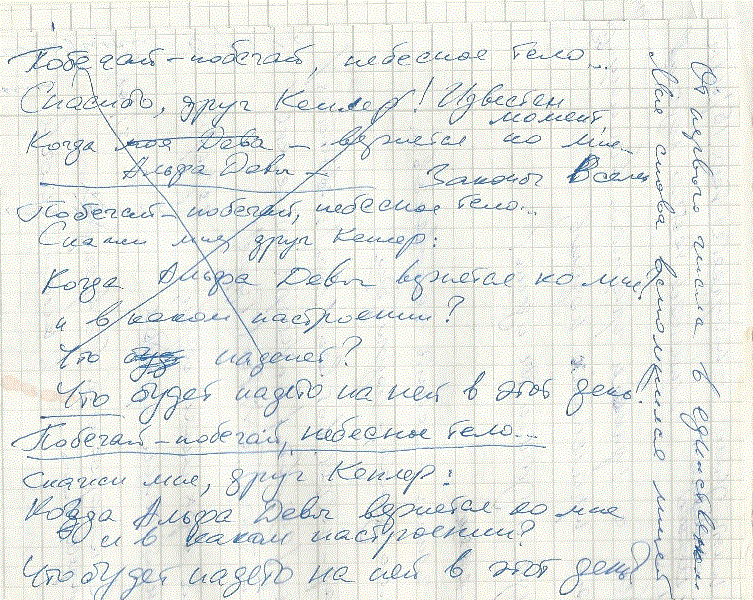 Побегай-побегай, небесное тело...
Спасибо, друг Кеплер! Известен
момент
Когда моя Дева – вернётся ко мне –
Альфа Девы – Законы Вселен
Побегай-побегай, небесное тело...
Скажи мне, друг Кеплер:
Когда Альфа Девы вернётся ко мне
и в каком настроении?
Что буд наденет?
Что будет надето на ней в этот день?
Побегай-побегай, небесное тело...
Скажи мне, друг Кеплер:
Когда Альфа Девы вернется ко мне
и в каком настроении?
Что будет надето на ней в этот день?
От первого числа в единственном
Моя снова лицей